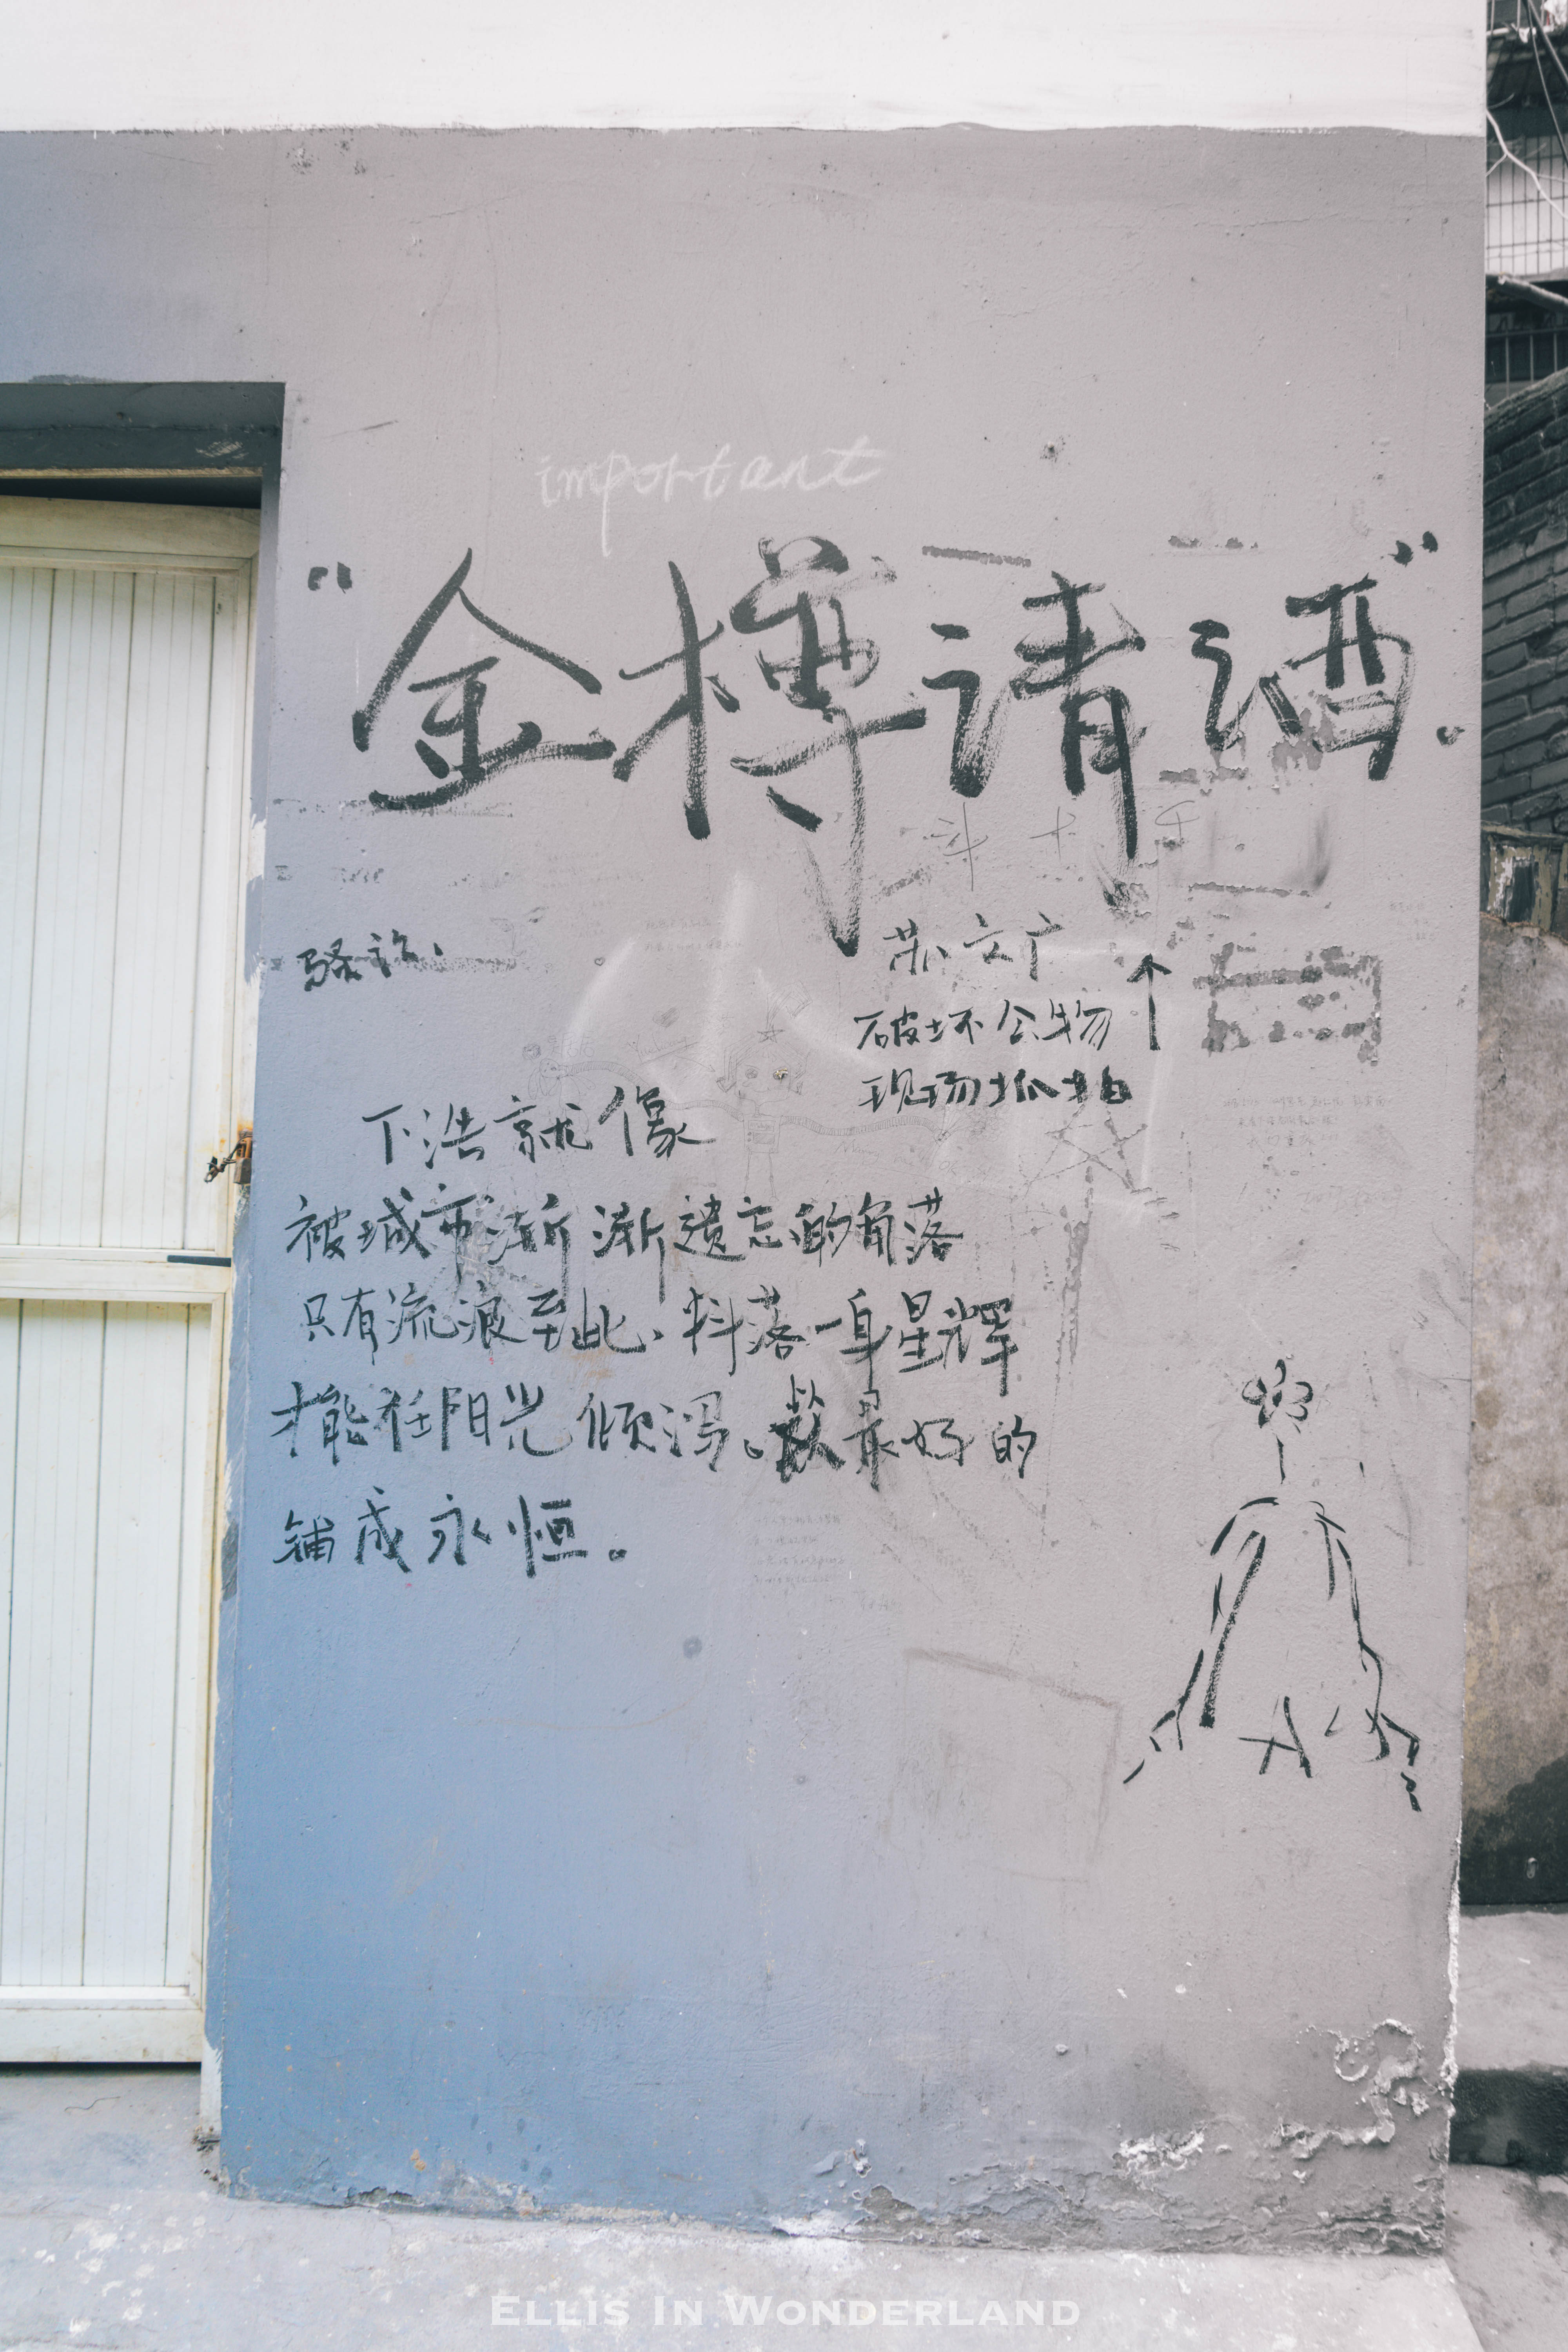 important
“金樽请酒”.
斗十千
骚话.
苏文广
破坏公物↑
现场抓拍
下浩就像
被城市渐渐遗忘的角落
只有流浪至此、抖落一身星辉
才能在阳光倾泻。最好的
铺成永恒。
ELLIS IN WONDERLAND